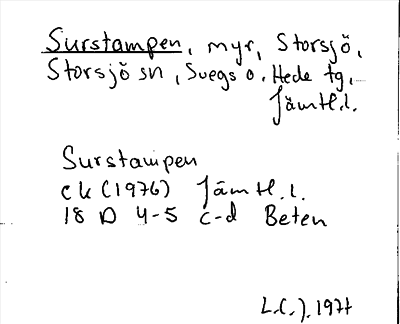 Surstampen, myr, Storsjö,
Storsjö sn, Svegs o. Hede tg,
Jämtl.l.
Surstampen
ek (1976) Jämtl.l.
18 D 4-5 c-d Beten
L.C.J. 1977